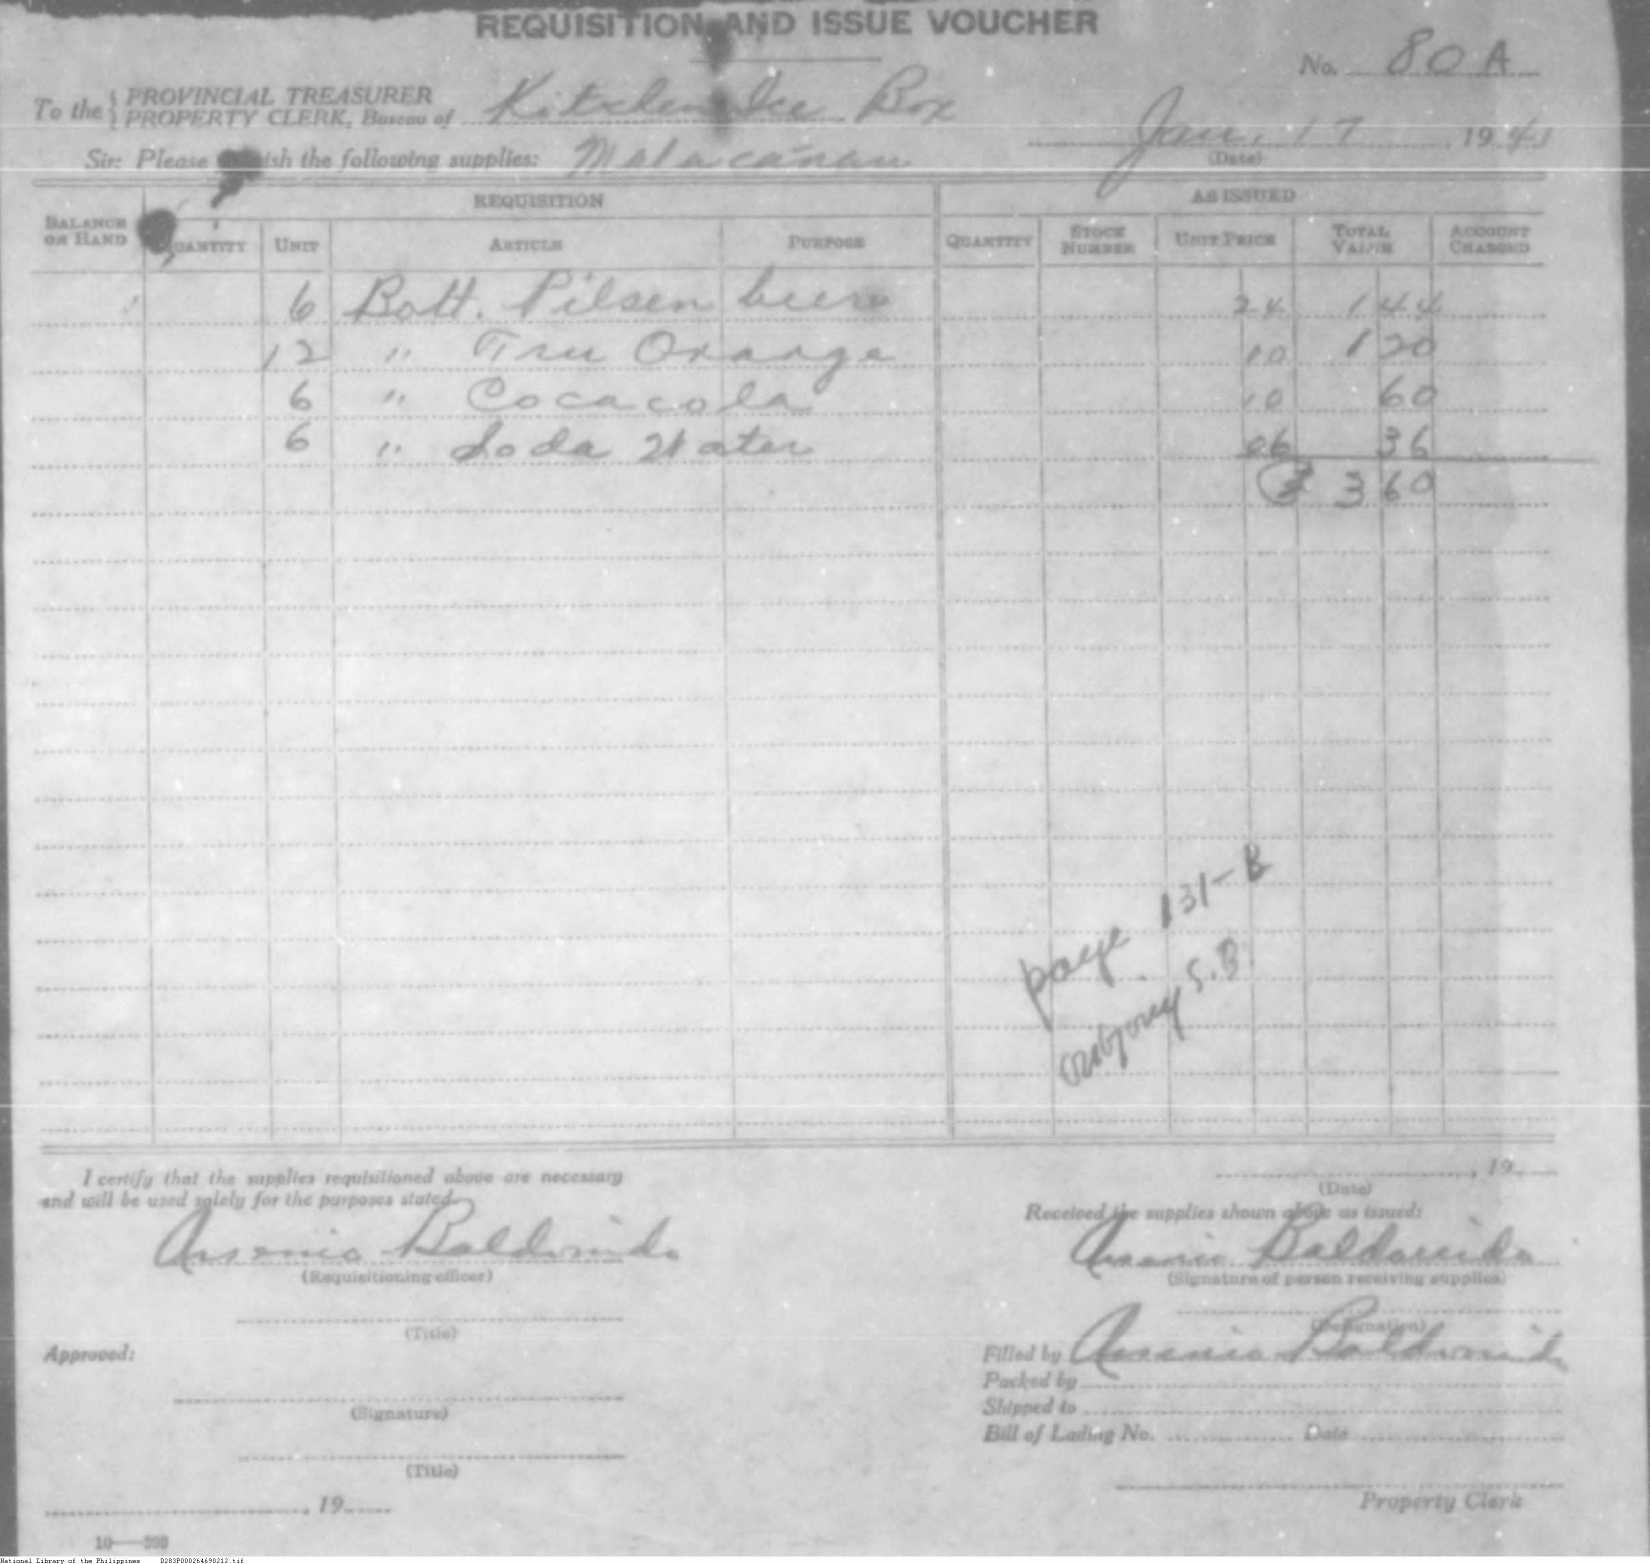 REQUISITION AND ISSUE VOUCHER
No. 80 A
To the { PROVINCIAL TREASURER
PROPERTY CLERK, Bureau of Kitchen Ice Box
Jan. 17 1941
(Date)
Sir: Please the following supplies: Malacañan
REQUISITION AS ISSUED
BALANCE ON HAND QUANTITY UNIT ARTICLE PURPOSE QUANTITY STOCK NUMBER UNIT PRICE TOTAL VALUE ACCOUNT CHARGED
6 Bott. Pilsen beer 24 1 44
12 " Tru Orange 10 1 20
6 " Cocacola 10 60
6 " Soda Water 06 36
3 60
page 131-B
S.B.
I certify that the supplies requisitioned above are necessary
and will be used solely for the purposes stated
Arsenio Baldomido
(Requisitioning officer)
(Title)
Approved:
(Signature)
(Title)
, 19
10—398
, 19
(Date)
Received the supplies shown above as issued:
Arsenio Baldomido
(Signature of person receiving supplies)
(Designation)
Filled by Arsenio Baldomido
Packed by
Shipped to
Bill of Lading No. Date
Property Clerk
National Library of the Philippines D283P000264690212.tif